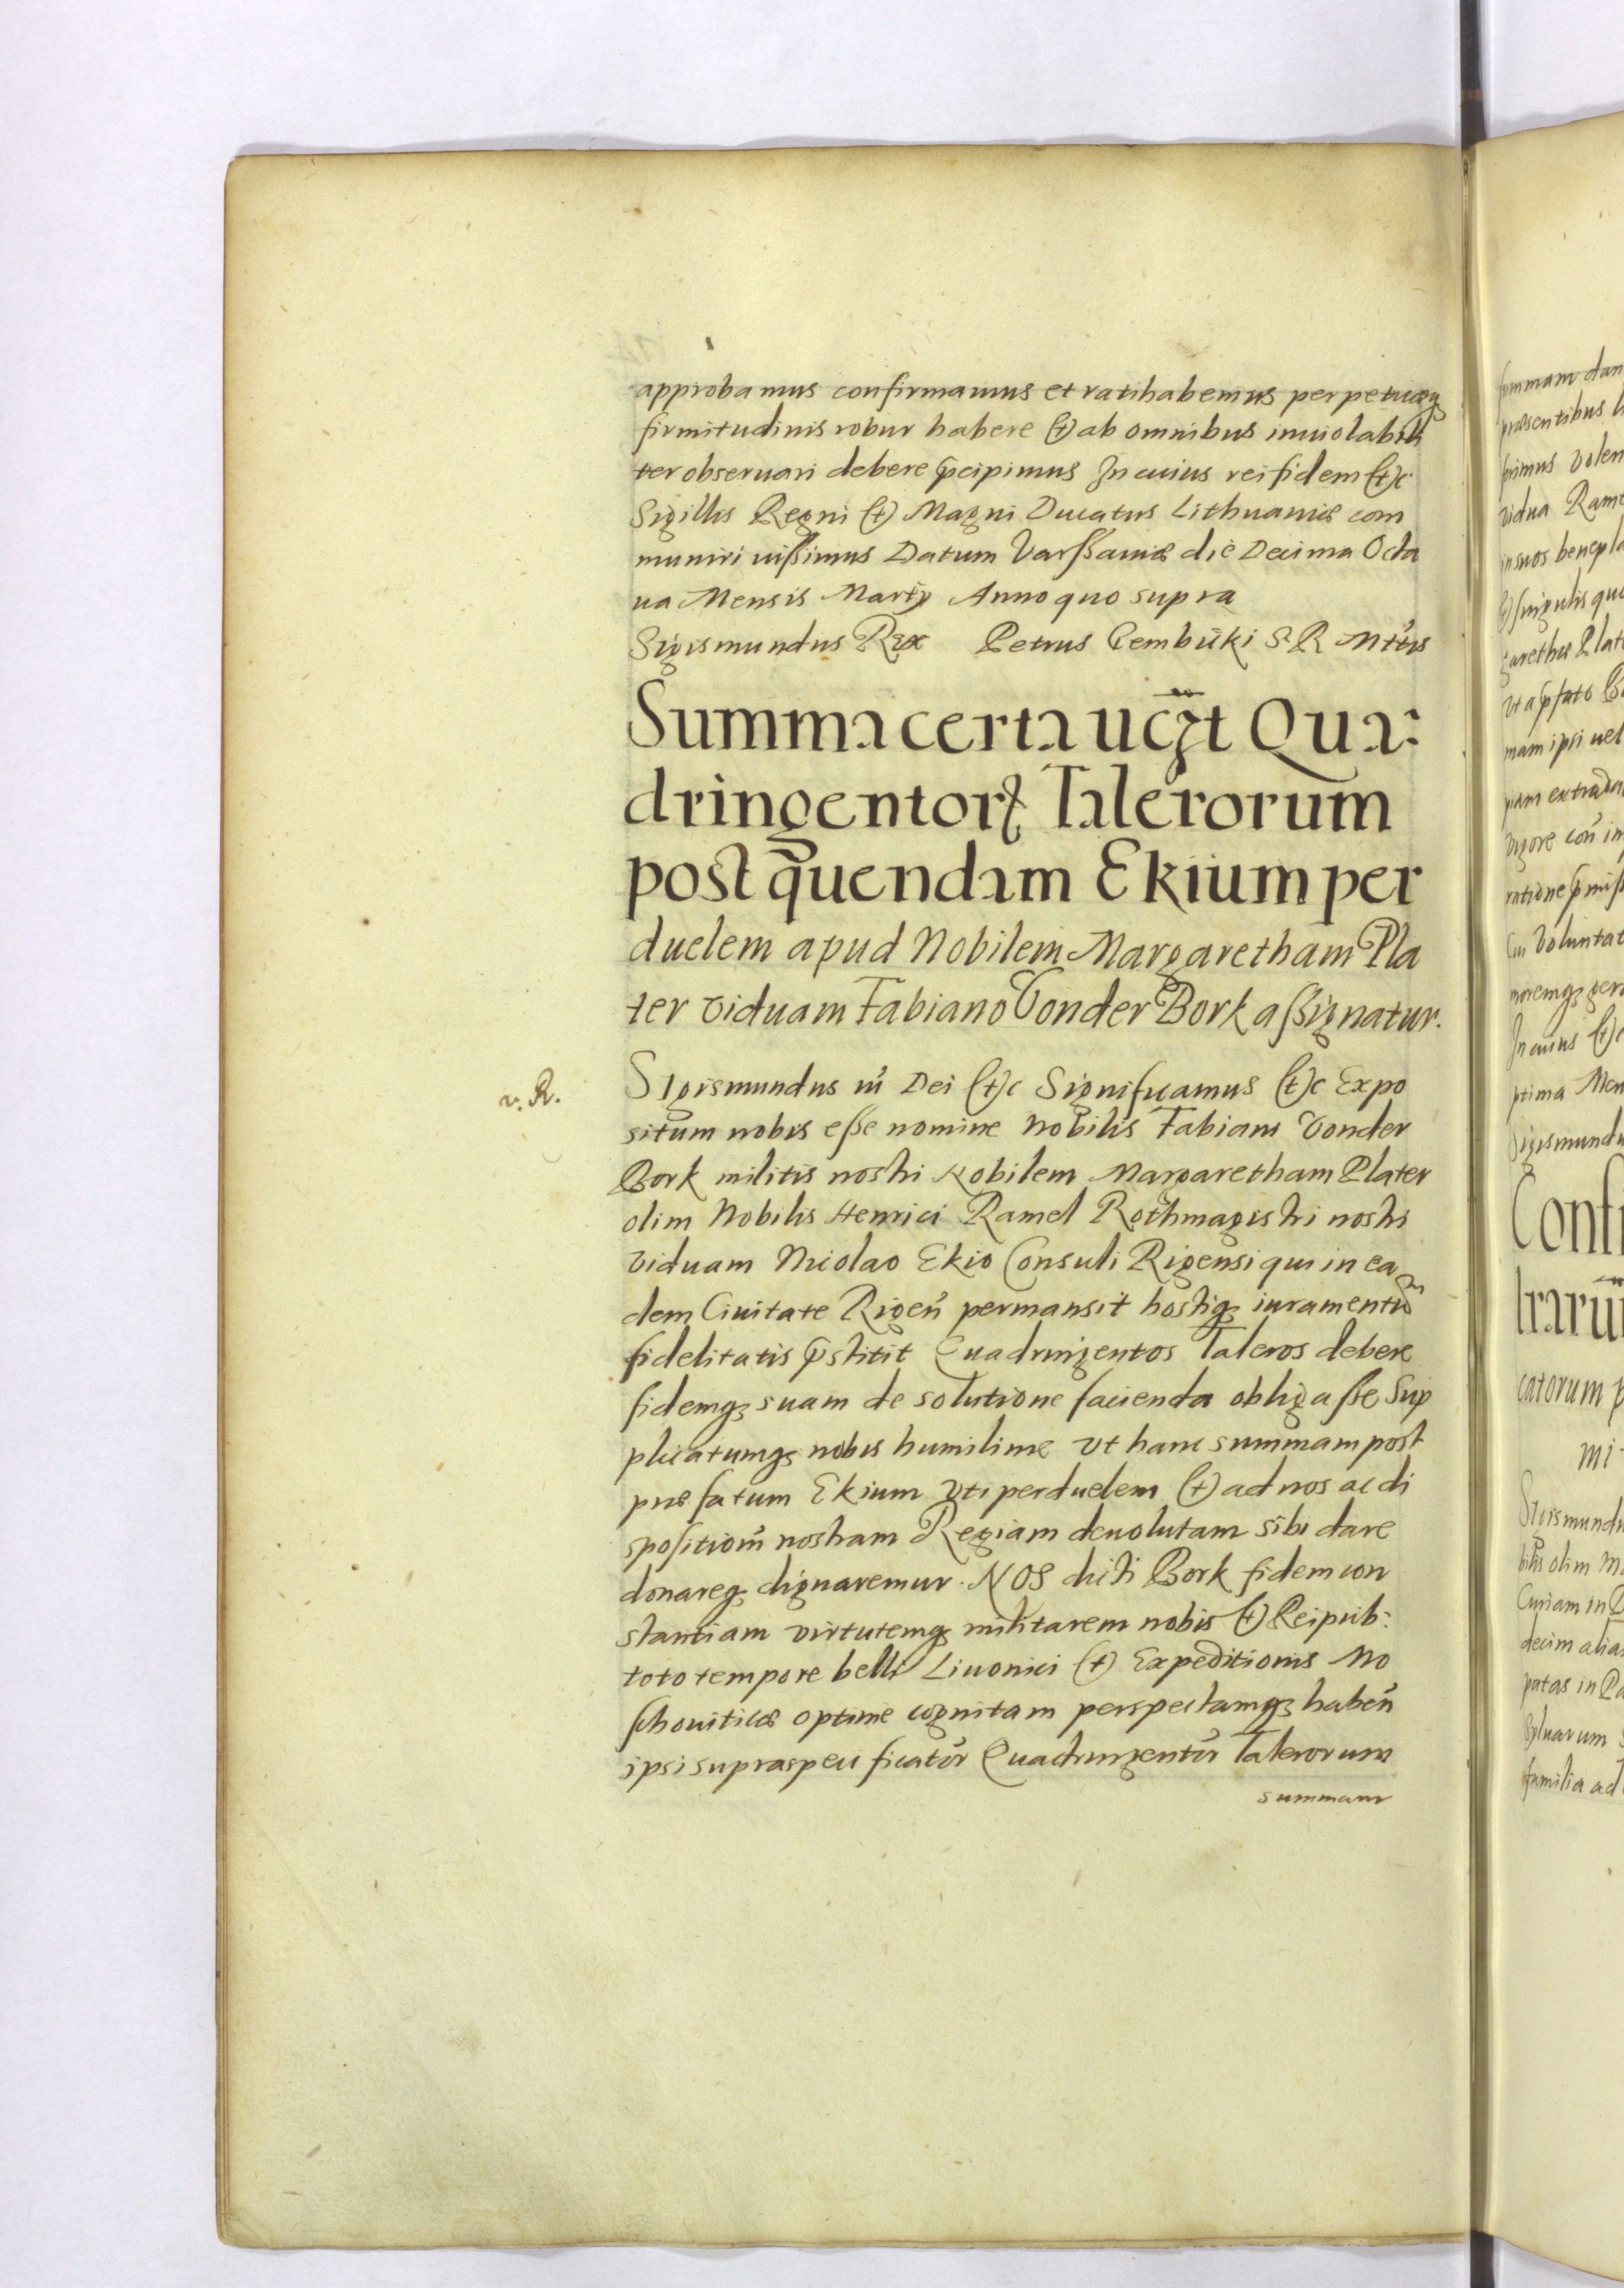 approbamus confirmamus et ratihabemus perpetuæq;
firmitudinis robur habere (et) ab omnibus inuiolabili
ter obseruari debere p̄cipimus In cuius rei fidem (et)c
Sigillis Regni (et) Magni Ducatus Lithuaniæ com
muniri iussimus Datum Varssauiæ die Decima Octa
ua Mensis Martÿ Anno quo supra
Sigismundus Rex Petrus Gembicki S R Mttis
Summa certa Qua:
dringentorꝝ Talerorum
post quendam Ekium per
duelem apud Nobilem Margaretham Pla
ter viduam Fabiano Vonder Bork assignatur.
v. R.
Sigismundus iii Dei (et)c Significamus (et)c Expo
situm nobis esse nomine Nobilis Fabiani Vonder
Bork militis nostri Nobilem Margaretham Plater
olim Nobilis Henrici Ramel Rothmagistri nostri
viduam Nicolao Ekio Consuli Rigensi qui in ea
dem Ciuitate Rigeñ permansit hostiq; iuramentũ
fidelitatis p̄stitit Quadringentos Taleros debere
fidemq; suam de solutione facienda obligasse Sup
plicatumq; nobis humilime vt hanc summam post
præfatum Ekium vti perduelem (et) ad nos ac di
spositioñ nostram Regiam deuolutam sibi dare
donareq; dignaremur. NOS dicti Bork fidem con
stantiam virtutemq; militarem nobis (et) Reipub:
toto tempore belli Liuonici (et) Expeditionis Mo
schouiticæ optime cognitam perspectamq; habeñ
ipsi supraspecificator̃ Quadringentor̃ Talerorum
summam
summam dan
præsentibus
vidua Rame
in suos benepla
(et) singulis qu
garethæ Plat
Vt a p̄fato
mam ipsi uel
Cui Voluntat
In cuius (et)c
ptima Men
Sigismundu
Confi
catorum p
mi
Sigismundu
bilis olim Ma
Curiam in
decim alias
patas in
Syluarum
familia ad